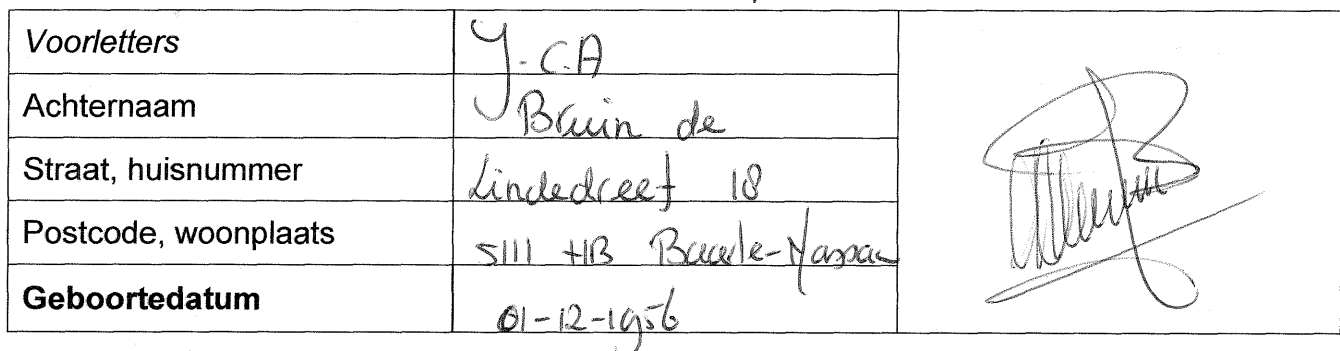 Voorletters J.C.A
Achternaam Bruin de
Straat, huisnummer Lindedreef 18
Postcode, woonplaats 5111 HB Baarle-Nassau
Geboortedatum 01-12-1956